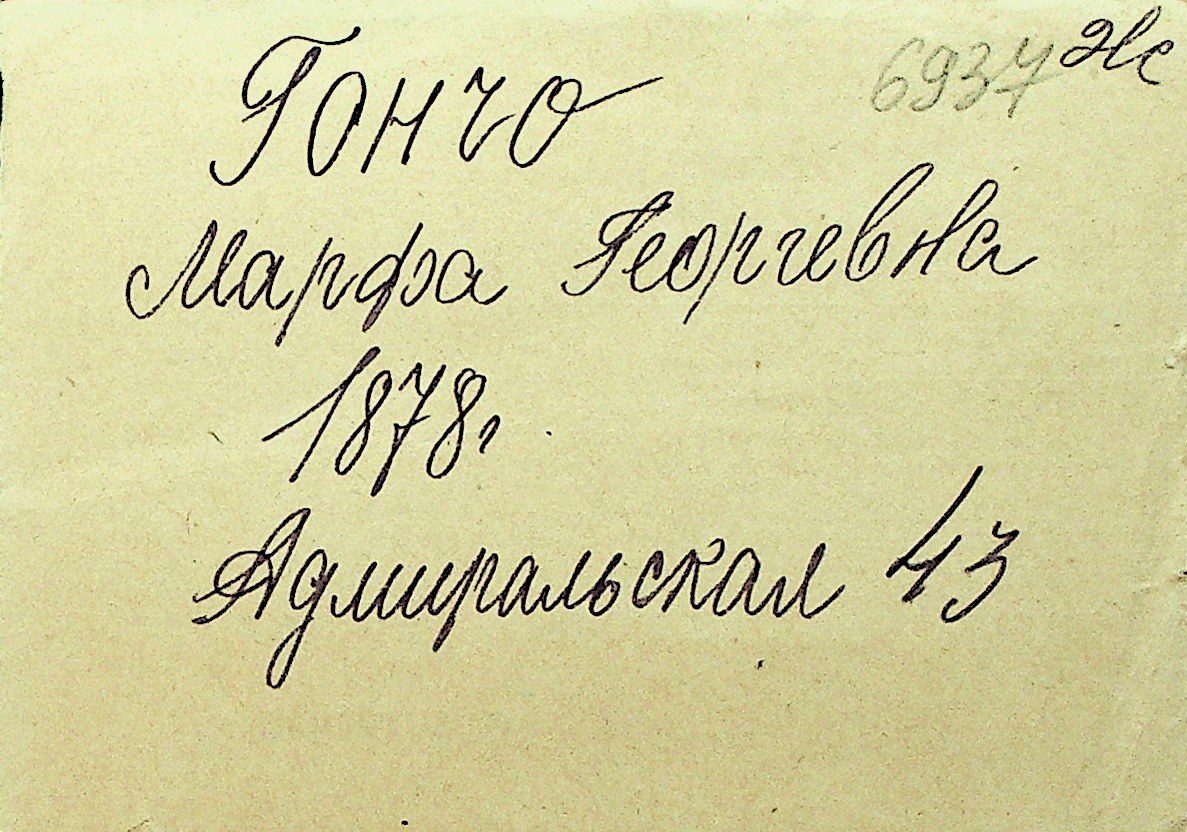 6937 Же
Гончо
Марфа Георгевна
1878г
Адмиральская 43